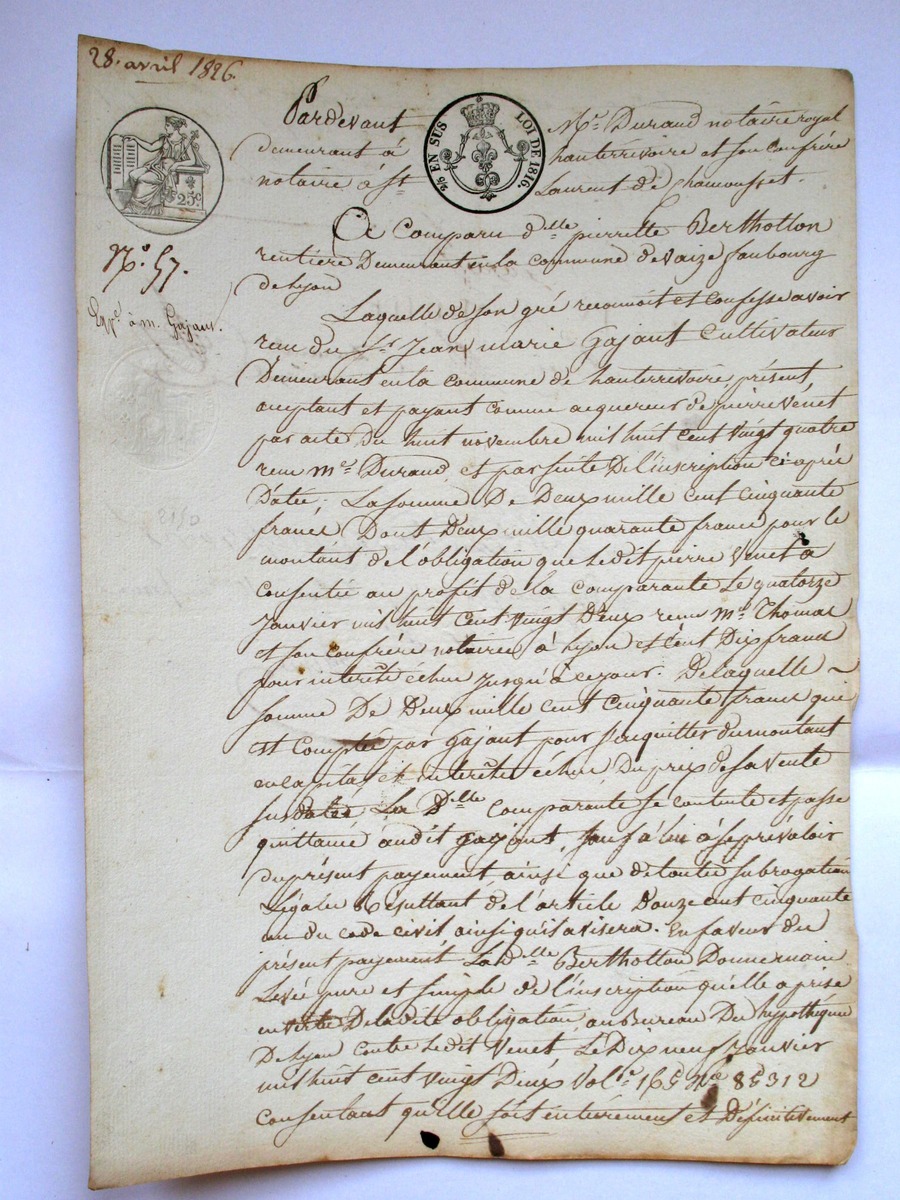 28. avril 1826.
Pardevant Me. Durand notaire royal
demeurant à hauterivoire et son confrère
notaire à St Laurent de chamousset.
25c
2/5 EN SUS LOI DE 1816.
No. 57.
Expé. à m. Gajant.
A Comparu dlle pierrette Berthollon
rentière Demeurant en la commune de vaize faubourg
de Lyon
Laquelle de son gré reconnoit et confesse avoir
recu du Sr. Jean marie Gajant Cultivateur
Demeurant en la commune de hauterrivoire présent
acceptant et payant comme acquereur de pierre Venet
par acte Du huit novembre mil huit cent vingt quatre
recu me. Durand, et par suite De l'inscription ci-après
Datée; La somme De Deux mille cent cinquante
francs Dont Deux mille quarante francs pour le
montant de l'obligation que ledit pierre Venet a
consentie au profit de la comparante Le quatorze
Janvier mil huit cent vingt Deux recu me. Thomas
et son confrère notaires à Lyon et cent Dix francs
pour interêts échus jusqu'à ce jour. De laquelle
somme De Deux mille cent cinquante francs qui
est comptée par Gajant pour s'acquitter du montant
en capital et interêts échus Du prix de sa vente
susdatée La Dlle comparante se contente et passe
quittance audit gajant, sauf à lui à se prévaloir
du présent payement ainsi que de toutes subrogation
Légales Résultant de l'article Douze cent cinquante
un du code civil ainsi qu'il avisera. En faveur du
présent payement La dlle Berthollon Donne main
Levée pure et simple de l'inscription qu'elle a prise
en vertu De la dite obligation, au Bureau Des hypothèques
De Lyon contre ledit Venet Le Dix neuf Janvier
mil huit cent vingt Deux Vol. 165 No 85312
consentant qu'elle soit entièrement et Définitivement